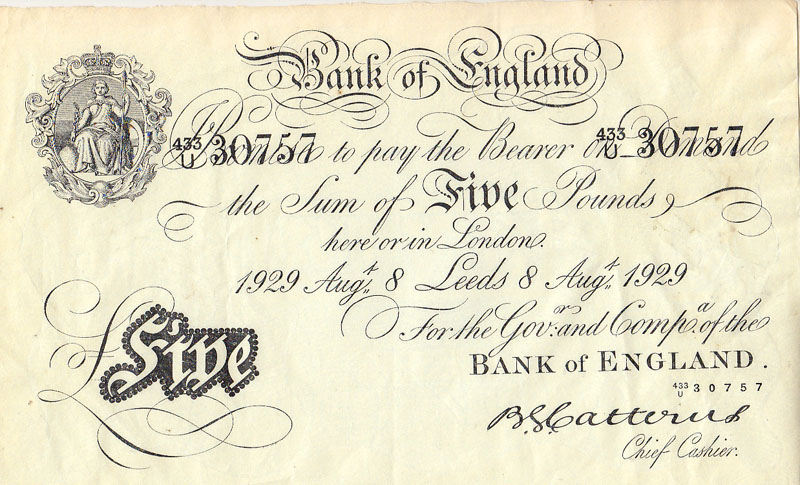 Bank of England
433/U 30757 433/U 30757
I Promise to pay the Bearer on Demand
the Sum of Five Pounds
here or in London.
1929 Augt. 8 Leeds 8 Augt. 1929
For the Govr. and Compa. of the
BANK of ENGLAND.
433/U 30757
£ Five
B.G. Catterns
Chief Cashier.